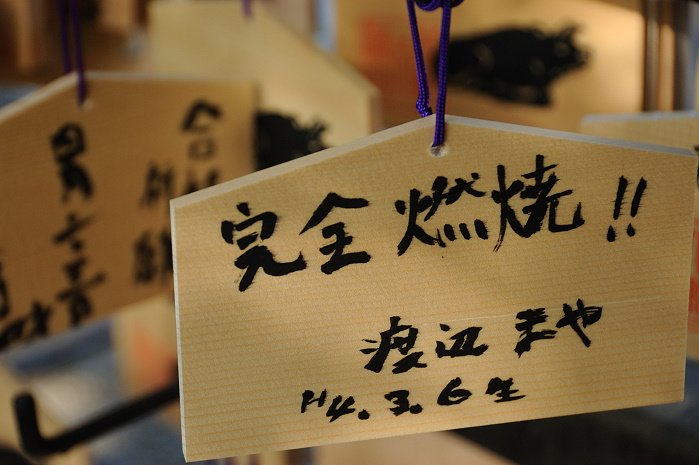 完全燃焼!!
渡辺まや
H4.3.6生